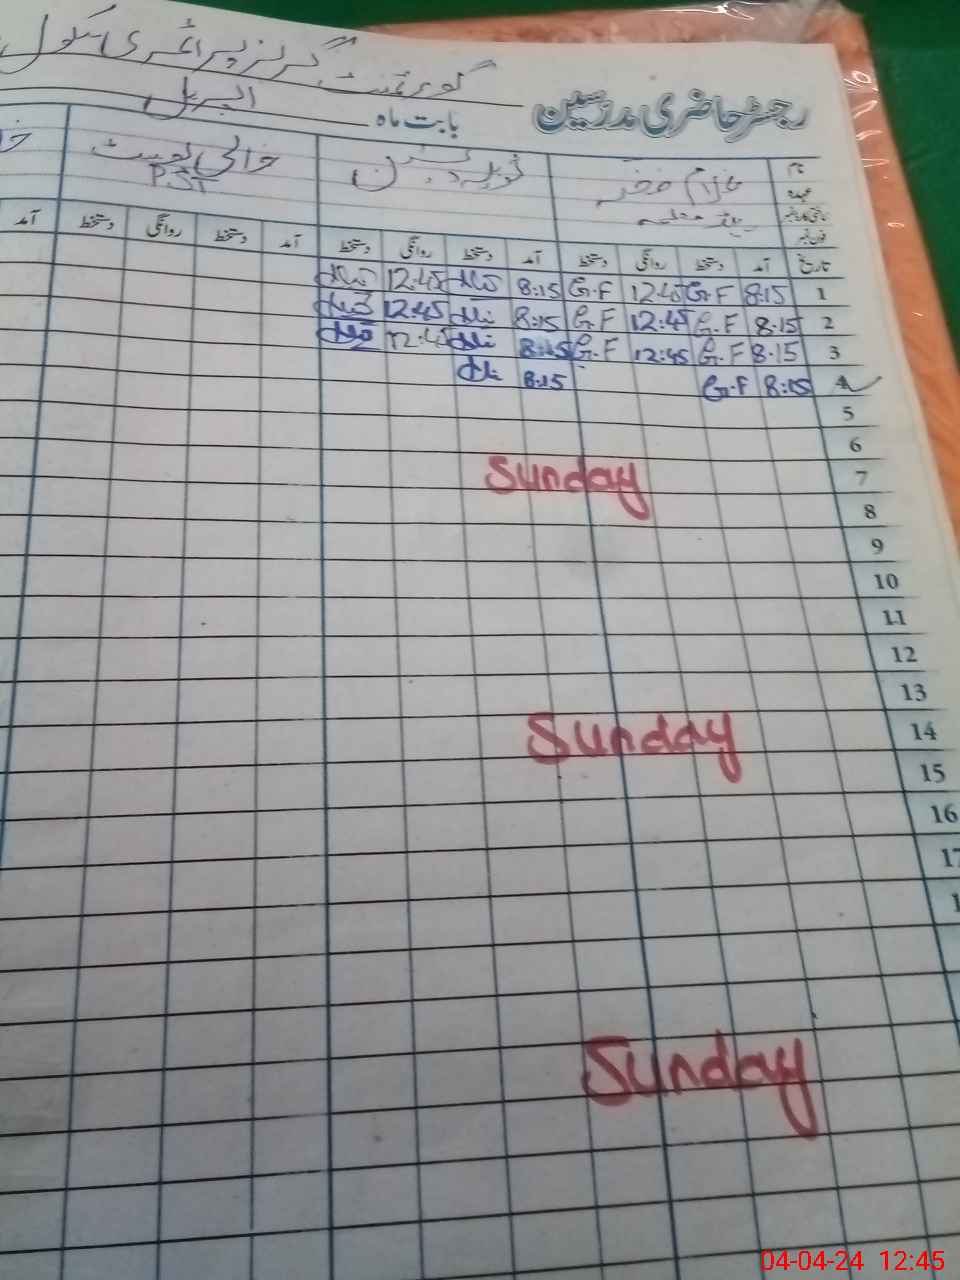 گورنمنٹ گرلز پرائمری سکول
رجسٹر حاضری مدرسین
بابت ماہ اپریل
نام غلام فخر خالی پوسٹ
عہدہ ہیڈ معلمہ PST
فون نمبر
تاریخ آمد دستخط روانگی دستخط آمد دستخط روانگی دستخط آمد دستخط روانگی دستخط آمد
1 8:15 G.F 12:45 G.F 8:15 12:45
2 8:15 G.F 12:45 G.F 8:15 12:45
3 8:15 G.F 12:45 G.F 8:15 12:45
4 8:15 G.F 8:15
5
6
7 Sunday
8
9
10
11
12
13
14 Sunday
15
16
17
Sunday
04-04-24 12:45